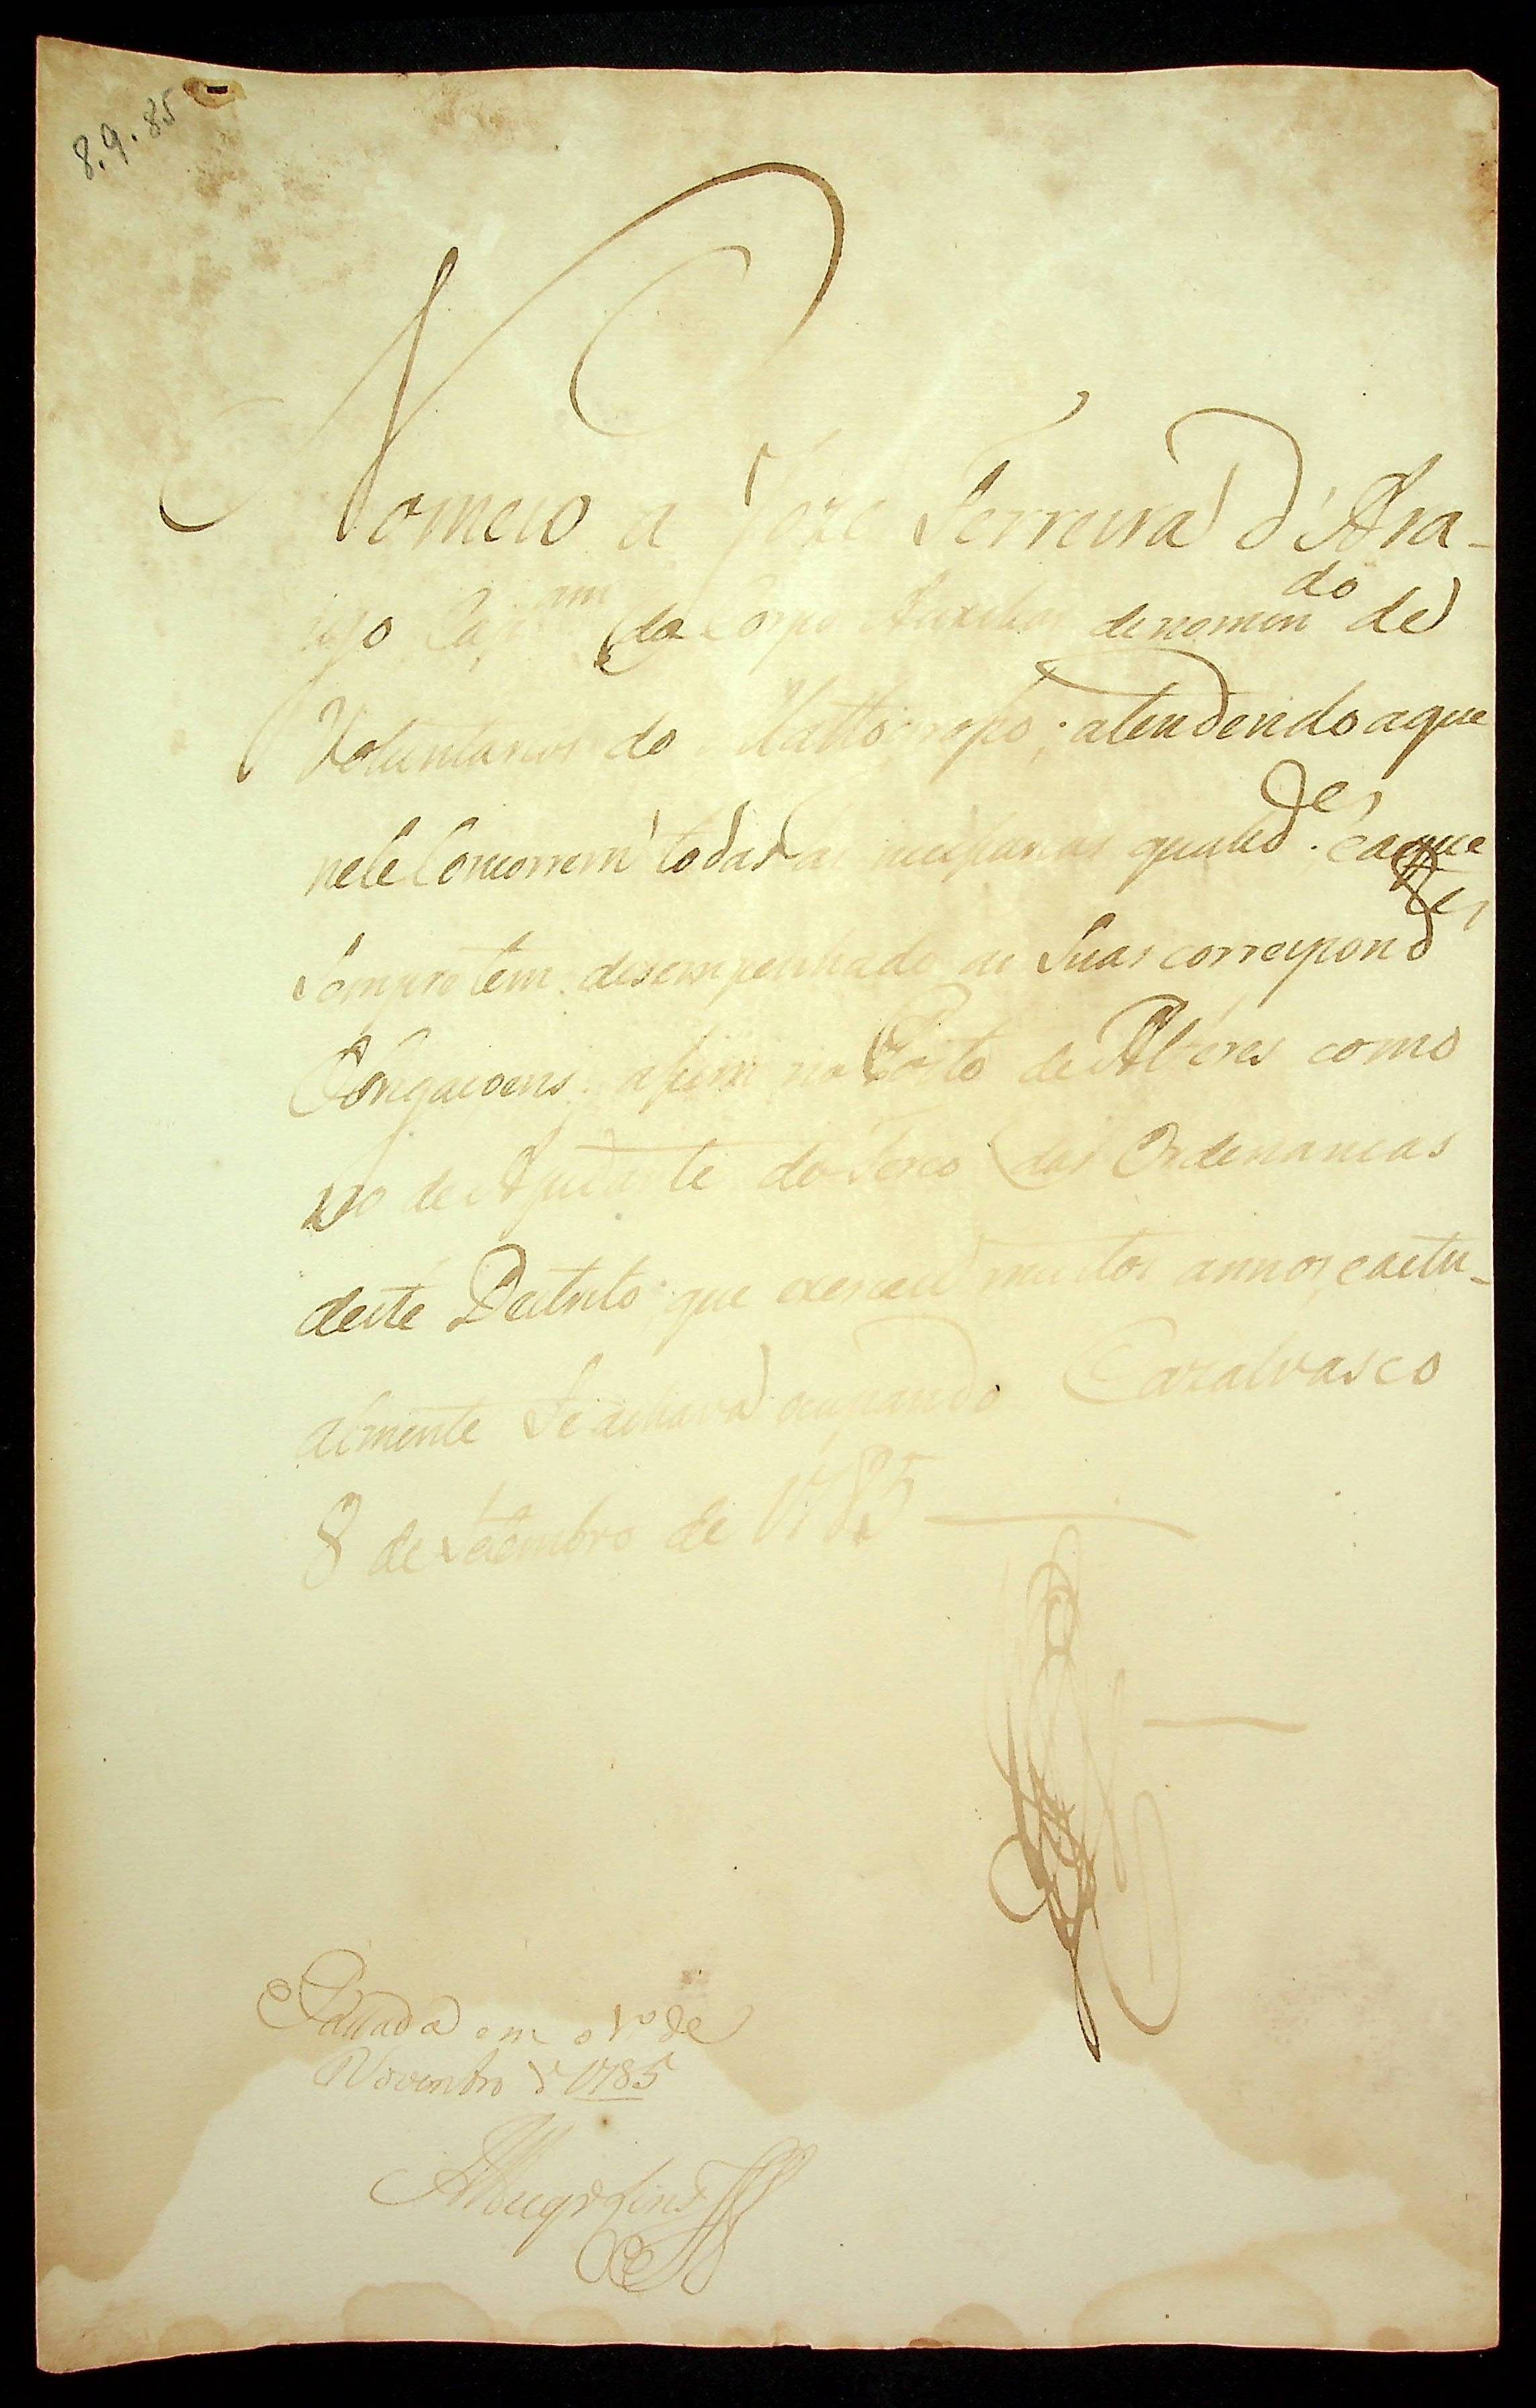 8.9.85
Nomeio a Joze Ferreira d'Ara-
ujo Cap.am do Corpo Auxiliar denomin.do de
Voluntarios do Mattogroço; atendendo a que
nele Concorrem todas as necesarias qualid.des, e a que
Sempre tem desempenhado as Suas correspond.tes
Obrigacoens, asim no Posto de Alferes como
no de Ajudante do Terco das Ordenancas
deste Destrito que exerceu muitos annos, e actu-
almente Se achava ocupando. Cazalvasco
8 de Setembro de 1785
Passada em o 1.o de
Novembro d 1785